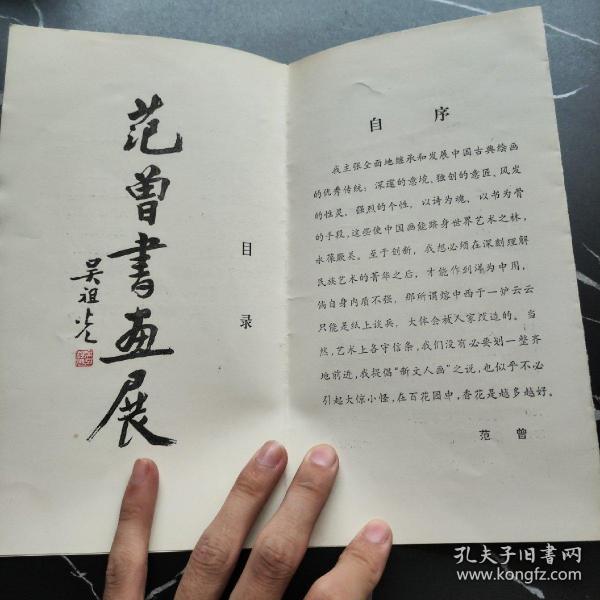 范曾書画展
吴祖光
目录
自序
我主张全面地继承和发展中国古典绘画
的优秀传统：深邃的意境、独创的意匠、风发
的性灵，强烈的个性，以诗为魂，以书为骨
的手段，这些使中国画能跻身世界艺术之林，
永葆厥美。至于创新，我想必须在深刻理解
民族艺术的菁华之后，才能作到洋为中用，
倘自身内质不强，那所谓熔中西于一炉云云
只能是纸上谈兵，大体会被人家改造的。当
然，艺术上各守信条，我们没有必要划一整齐
地前进，我提倡“新文人画”之说，也似乎不必
引起大惊小怪，在百花园中，香花是越多越好。
范曾
孔夫子旧书网
www.kongfz.com